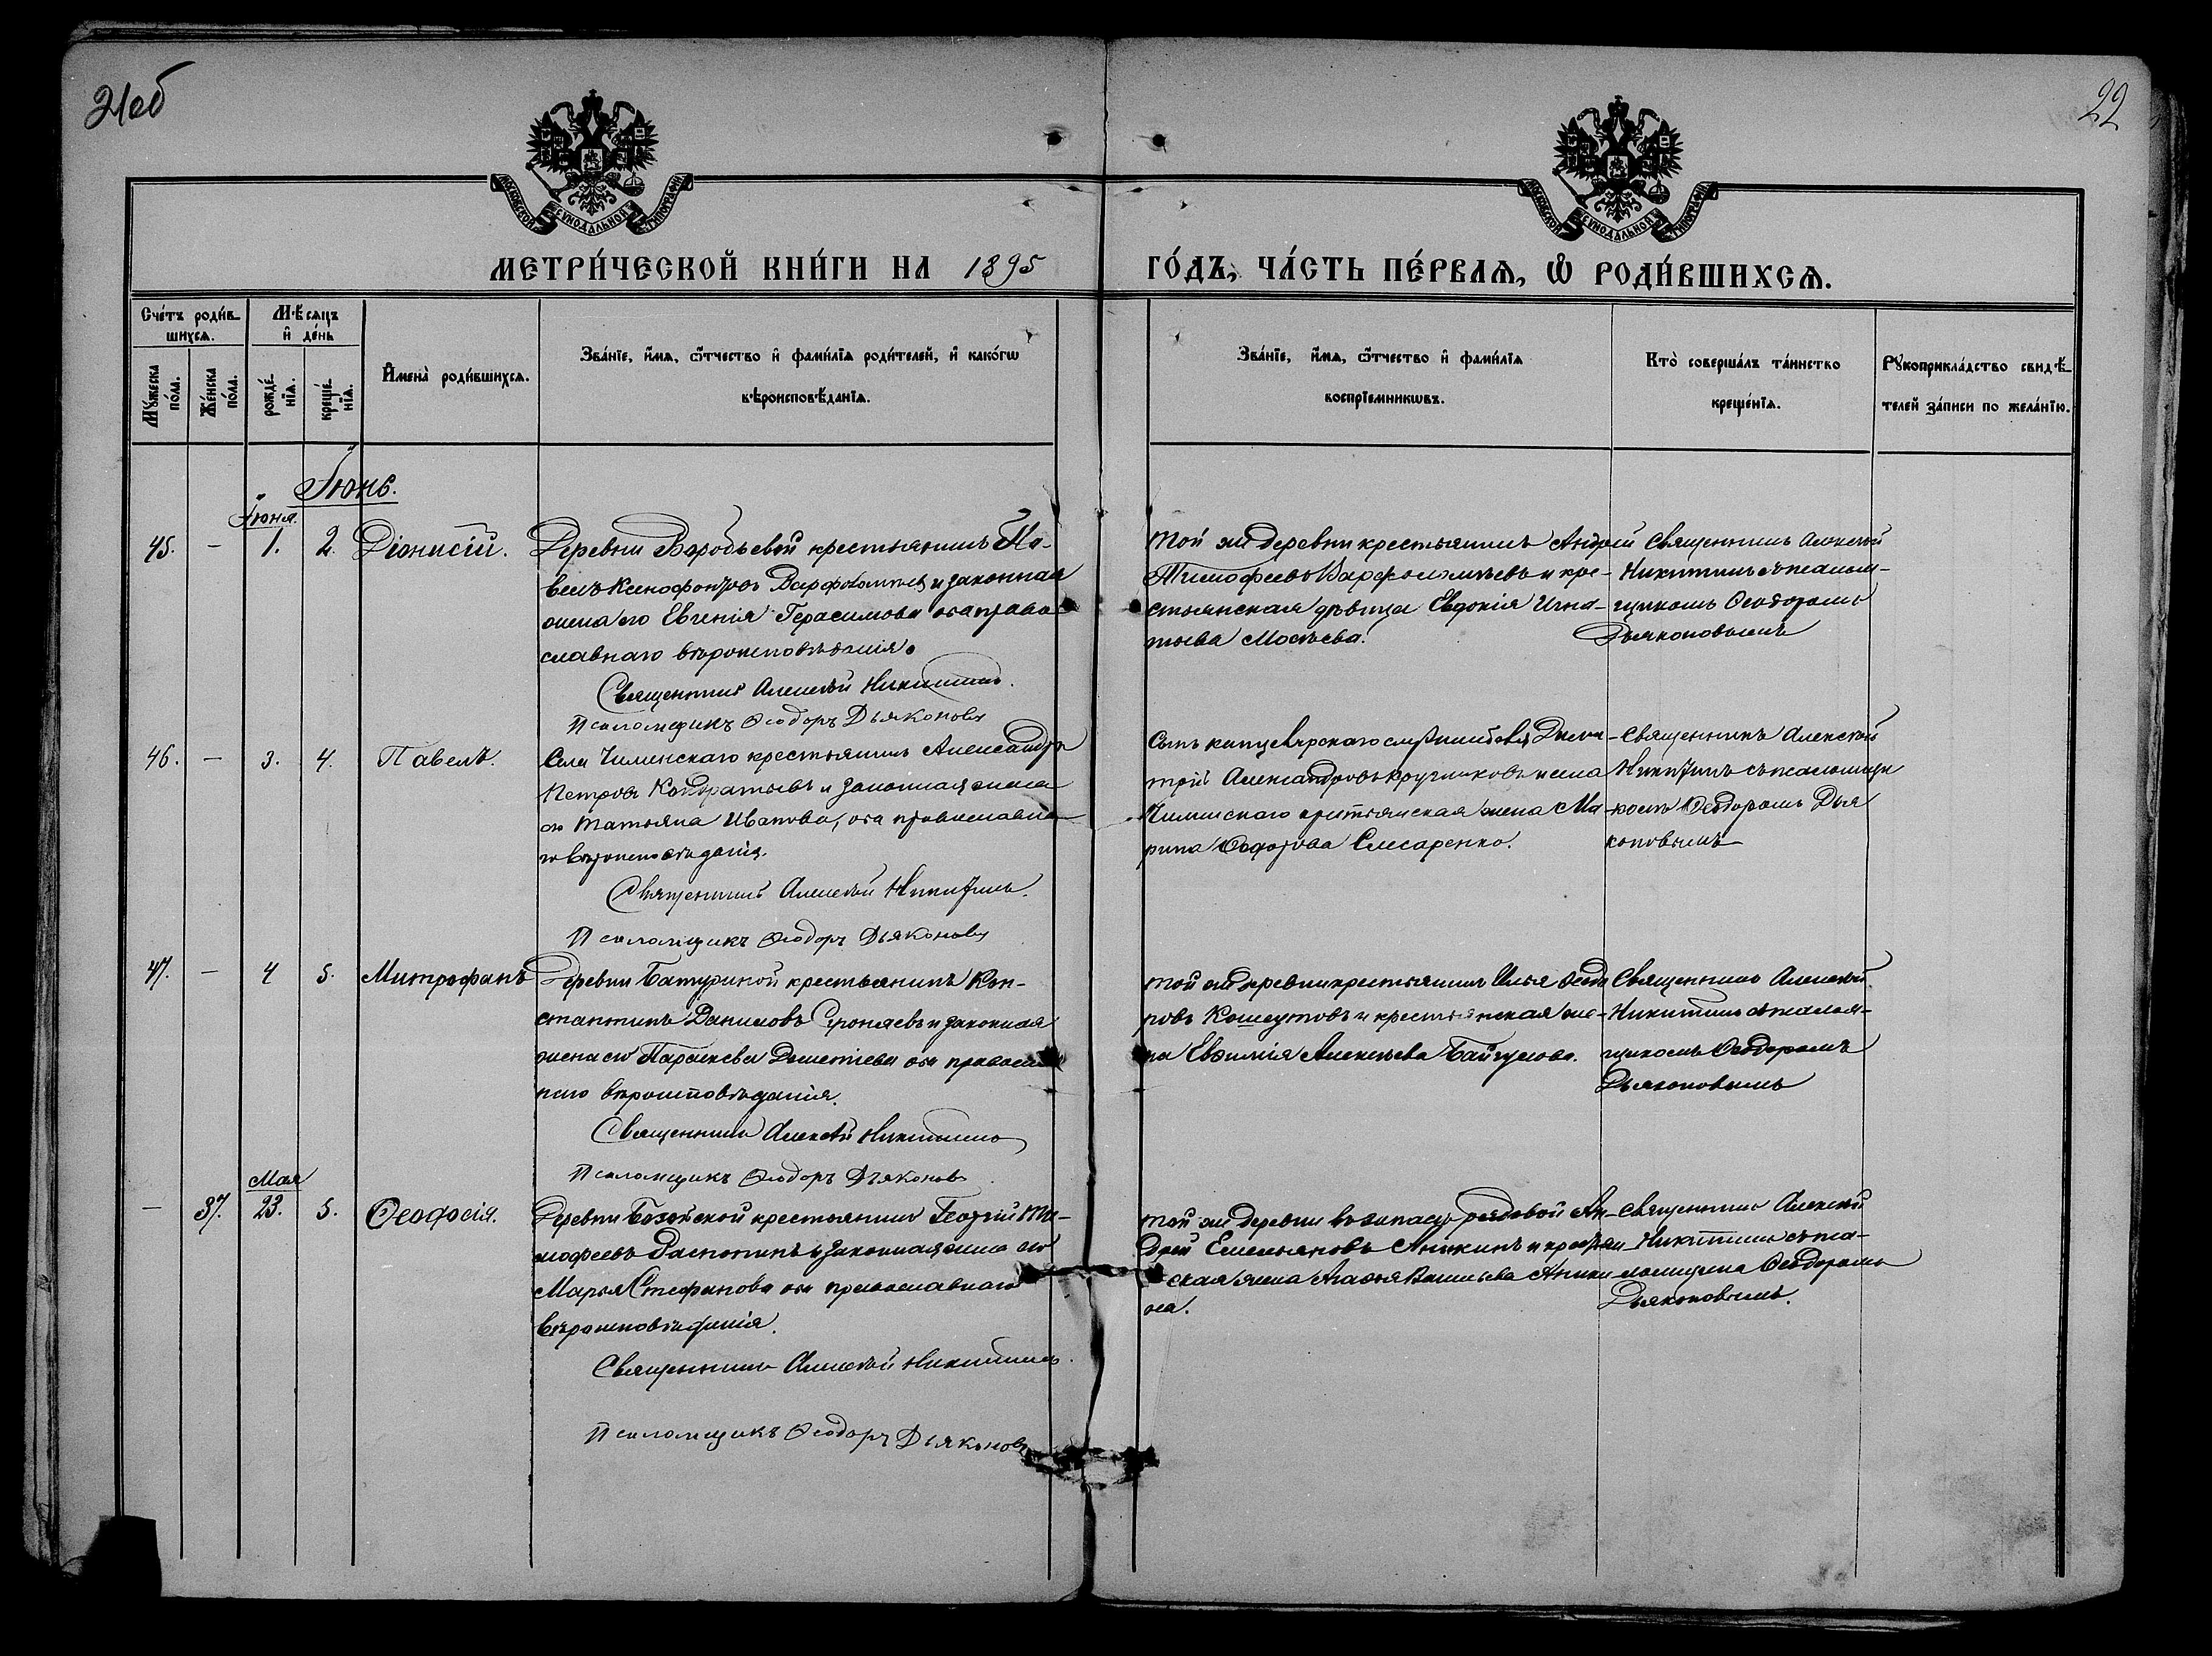 21об
22
МОСКОВСКОЙ СѴНОДАЛЬНОЙ ТИПОГРАФІИ
МОСКОВСКОЙ СѴНОДАЛЬНОЙ ТИПОГРАФІИ
МЕТРИ́ЧЕСКОЙ КНИ́ГИ НА 1895 ГО́ДЪ, ЧА́СТЬ ПЕ́РВАѦ, Ѡ҆ РОДИ́ВШИХСѦ.
Сче́тъ роди́в-
шихсѧ.
Мꙋ́жеска по́ла.
Же́нска по́ла.
Мѣ́сѧцъ и҆ де́нь
рожде́нїѧ.
креще́нїѧ.
И҆мена̀ роди́вшихсѧ.
Зва́нїе, и҆́мѧ, ѻ҆́тчество и҆ фами́лїѧ роди́телей, и҆ како́гѡ
вѣроисповѣ́данїѧ.
Зва́нїе, и҆́мѧ, ѻ҆́тчество и҆ фами́лїѧ
воспрїе́мникѡвъ.
Кто̀ соверша́лъ та́инство
креще́нїѧ.
Рꙋкоприкла́дство свидѣ́-
телей за́писи по жела́нїю.
Іюнь.
Іюня.
45. — 1. 2. Діонисій.
Деревни Воробьевой крестьянинъ Па-
велъ Ксенофонтовъ Варфоломеевъ и законная
жена его Евгенія Герасимова оба право
славнаго вѣроисповѣданія.
Священникъ Алексѣй Никитинъ.
Псаломщикъ Ѳеодоръ Дьяконовъ
Той же деревни крестьянинъ Андрей
Тимофеевъ Варфоломѣевъ и кре-
стьянская дѣвица Евдокія Игна-
тьева Мосѣева.
Священникъ Алексѣй
Никитинъ съ псалом-
щикомъ Ѳеодоромъ
Дьяконовымъ
46. — 3. 4. Павелъ.
Села Чиминскаго крестьянинъ Александръ
Петровъ Кондратьевъ и законная жена
его Татьяна Иванова, оба православна
го вѣроисповѣданія.
Священникъ Алексѣй Никитинъ.
Псаломщикъ Ѳеодоръ Дьяконовъ
Сынъ Дими-
трій Александровъ Кругликовъ и села
Чиминскаго крестьянская жена Ма-
рина Ѳедотова Слесаренко.
Священникъ Алексѣй
Никитинъ съ псаломщи
комъ Ѳеодоромъ Дья
коновымъ
47. — 4 5. Митрофанъ
Деревни Батуриной крестьянинъ Кон-
стантинъ Даниловъ и законная
жена его Параскева Дометіева оба правосла
наго вѣроисповѣданія.
Священникъ Алексѣй Никитинъ
Псаломщикъ Ѳеодоръ Дьяконовъ
Той же деревни крестьянинъ Илья Ѳеодо
ровъ и крестьянская же-
на Евфимія Алексѣева
Священникъ Алексѣй
Никитинъ съ псалом-
щикомъ Ѳеодоромъ
Дьяконовымъ
Мая
— 37. 23. 5. Ѳеодосія.
Деревни Бозойской крестьянинъ Георгій Ти-
мофеевъ Распопинъ и законная жена его
Марья Стефанова оба православнаго
вѣроисповѣданія.
Священникъ Алексѣй Никитинъ.
Псаломщикъ Ѳеодоръ Дьяконовъ
Той же деревни въ запасѣ рядовой Ан-
дрей Емельяновъ Аникинъ и крестьян
ская жена Агафья Васильева Аники
на.
Священникъ Алексѣй
Никитинъ съ пса-
ломщикомъ Ѳеодоромъ
Дьяконовымъ.